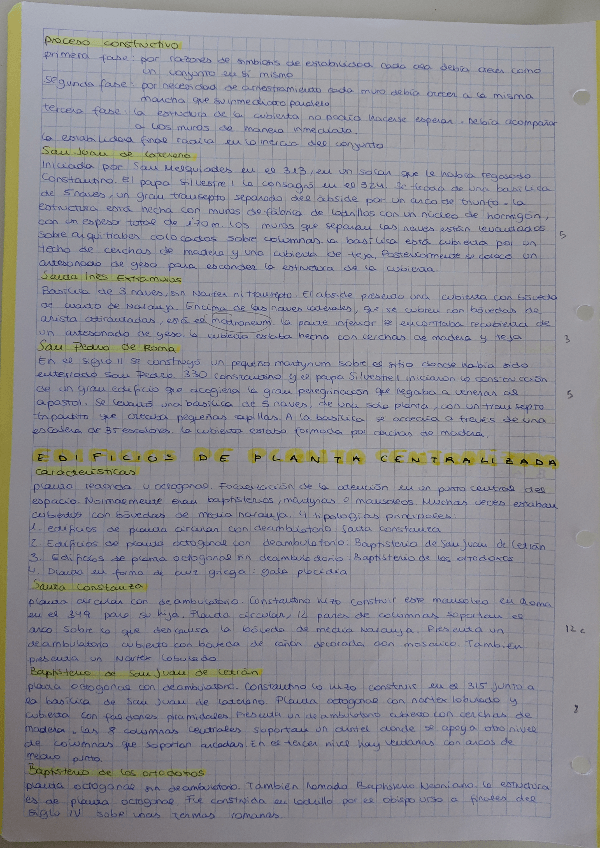 Proceso constructivo
primera fase: por razones de simbiosis de estabilidad cada osa debía crecer como
un conjunto en sí mismo
segunda fase: por necesidad de arriostramiento cada muro debía crecer a la misma
marcha que su inmediato paralelo
tercera fase: la estructura de la cubierta no podía hacerse esperar. Debía acompañar
a los muros de manera inmediata.
la estabilidad final radica en la inercia del conjunto
San Juan de Laterano
Iniciada por San Melquiades en el 313, en un solar que le había regalado
Constantino. El papa Silvestre I la consagró en el 324. Se trata de una basílica
de 5 naves, un gran transepto separado del abside por un arco de triunfo. La
estructura está hecha con muros de fábrica de ladrillos con un núcleo de hormigón,
con un espesor total de 1,70 m. Los muros que separan las naves están levantados
sobre arquitrabes colocados sobre columnas. la basílica está cubierta por un
techo de cerchas de madera y una cubierta de teja. Posteriormente se colocó un
artesonado de yeso para esconder la estructura de la cubierta.
5
Santa Inés Extramuros
Basílica de 3 naves, sin Nártex ni transepto. El abside presenta una cubierta con bóveda
de cuarto de Naranja. Encima de las naves laterales, que se cubren con bóvedas de
arista, está el matroneum. la parte inferior se encontraba recubierta de
un artesonado de yeso. la cubierta estaba hecha con cerchas de madera y teja
3
San Pedro de Roma
En el siglo II se construyó un pequeño martyrium sobre el sitio donde había sido
enterrado San Pedro. 330 constantino y el papa Silvestre I iniciaron la construcción
de un gran edificio que acogiese la gran peregrinación que llegaba a venerar al
apóstol. Se levantó una basílica de 5 naves, de una sola planta, con un transepto
tripartito que creaba pequeñas capillas. A la basílica se accedía a través de una
escalera de 35 escalones. la cubierta estaba formada por cerchas de madera.
5
EDIFICIOS DE PLANTA CENTRALIZADA
Características
planta redonda u octogonal. Focalización de la atención en un punto central del
espacio. Normalmente eran baptisterios, martyrias o mausoleos. Muchas veces estaban
cubiertos con bóvedas de media naranja. 4 tipologías principales:
1. edificios de planta circular con deambulatorio. Santa Constanza
2. Edificios de planta octogonal con deambulatorio. Baptisterio de San Juan de Letrán
3. Edificios de planta octogonal sin deambulatorio. Baptisterio de los ortodoxos
4. Planta en forma de cruz griega: gala placidia
Santa Constanza
planta circular con deambulatorio. Constantino hizo construir este mausoleo en Roma
en el 349 para su hija. Planta circular, 12 pares de columnas soportan el
arco sobre lo que descansa la bóveda de media Naranja. Presenta un
deambulatorio cubierto con bóveda de cañón decorada con mosaico. También
presenta un Nártex lobulado
12 c
Baptisterio de San Juan de Letrán
planta octogonal con deambulatorio. Constantino lo hizo construir en el 315 junto a
la basílica de San Juan de Laterano. Planta octogonal con nártex lobulado y
cubierta con faldones piramidales. Presenta un deambulatorio cubierto con cerchas de
madera. las 8 columnas centrales soportan un dintel donde se apoya otro nivel
de columnas que soportan arcadas. En el tercer nivel hay ventanas con arcos de
medio punto.
8
Baptisterio de los ortodoxos
planta octogonal sin deambulatorio. También llamado Baptisterio Neoniano. la estructura
es de planta octogonal. Fue construida en ladrillo por el obispo urso a finales del
siglo IV sobre unas termas romanas.